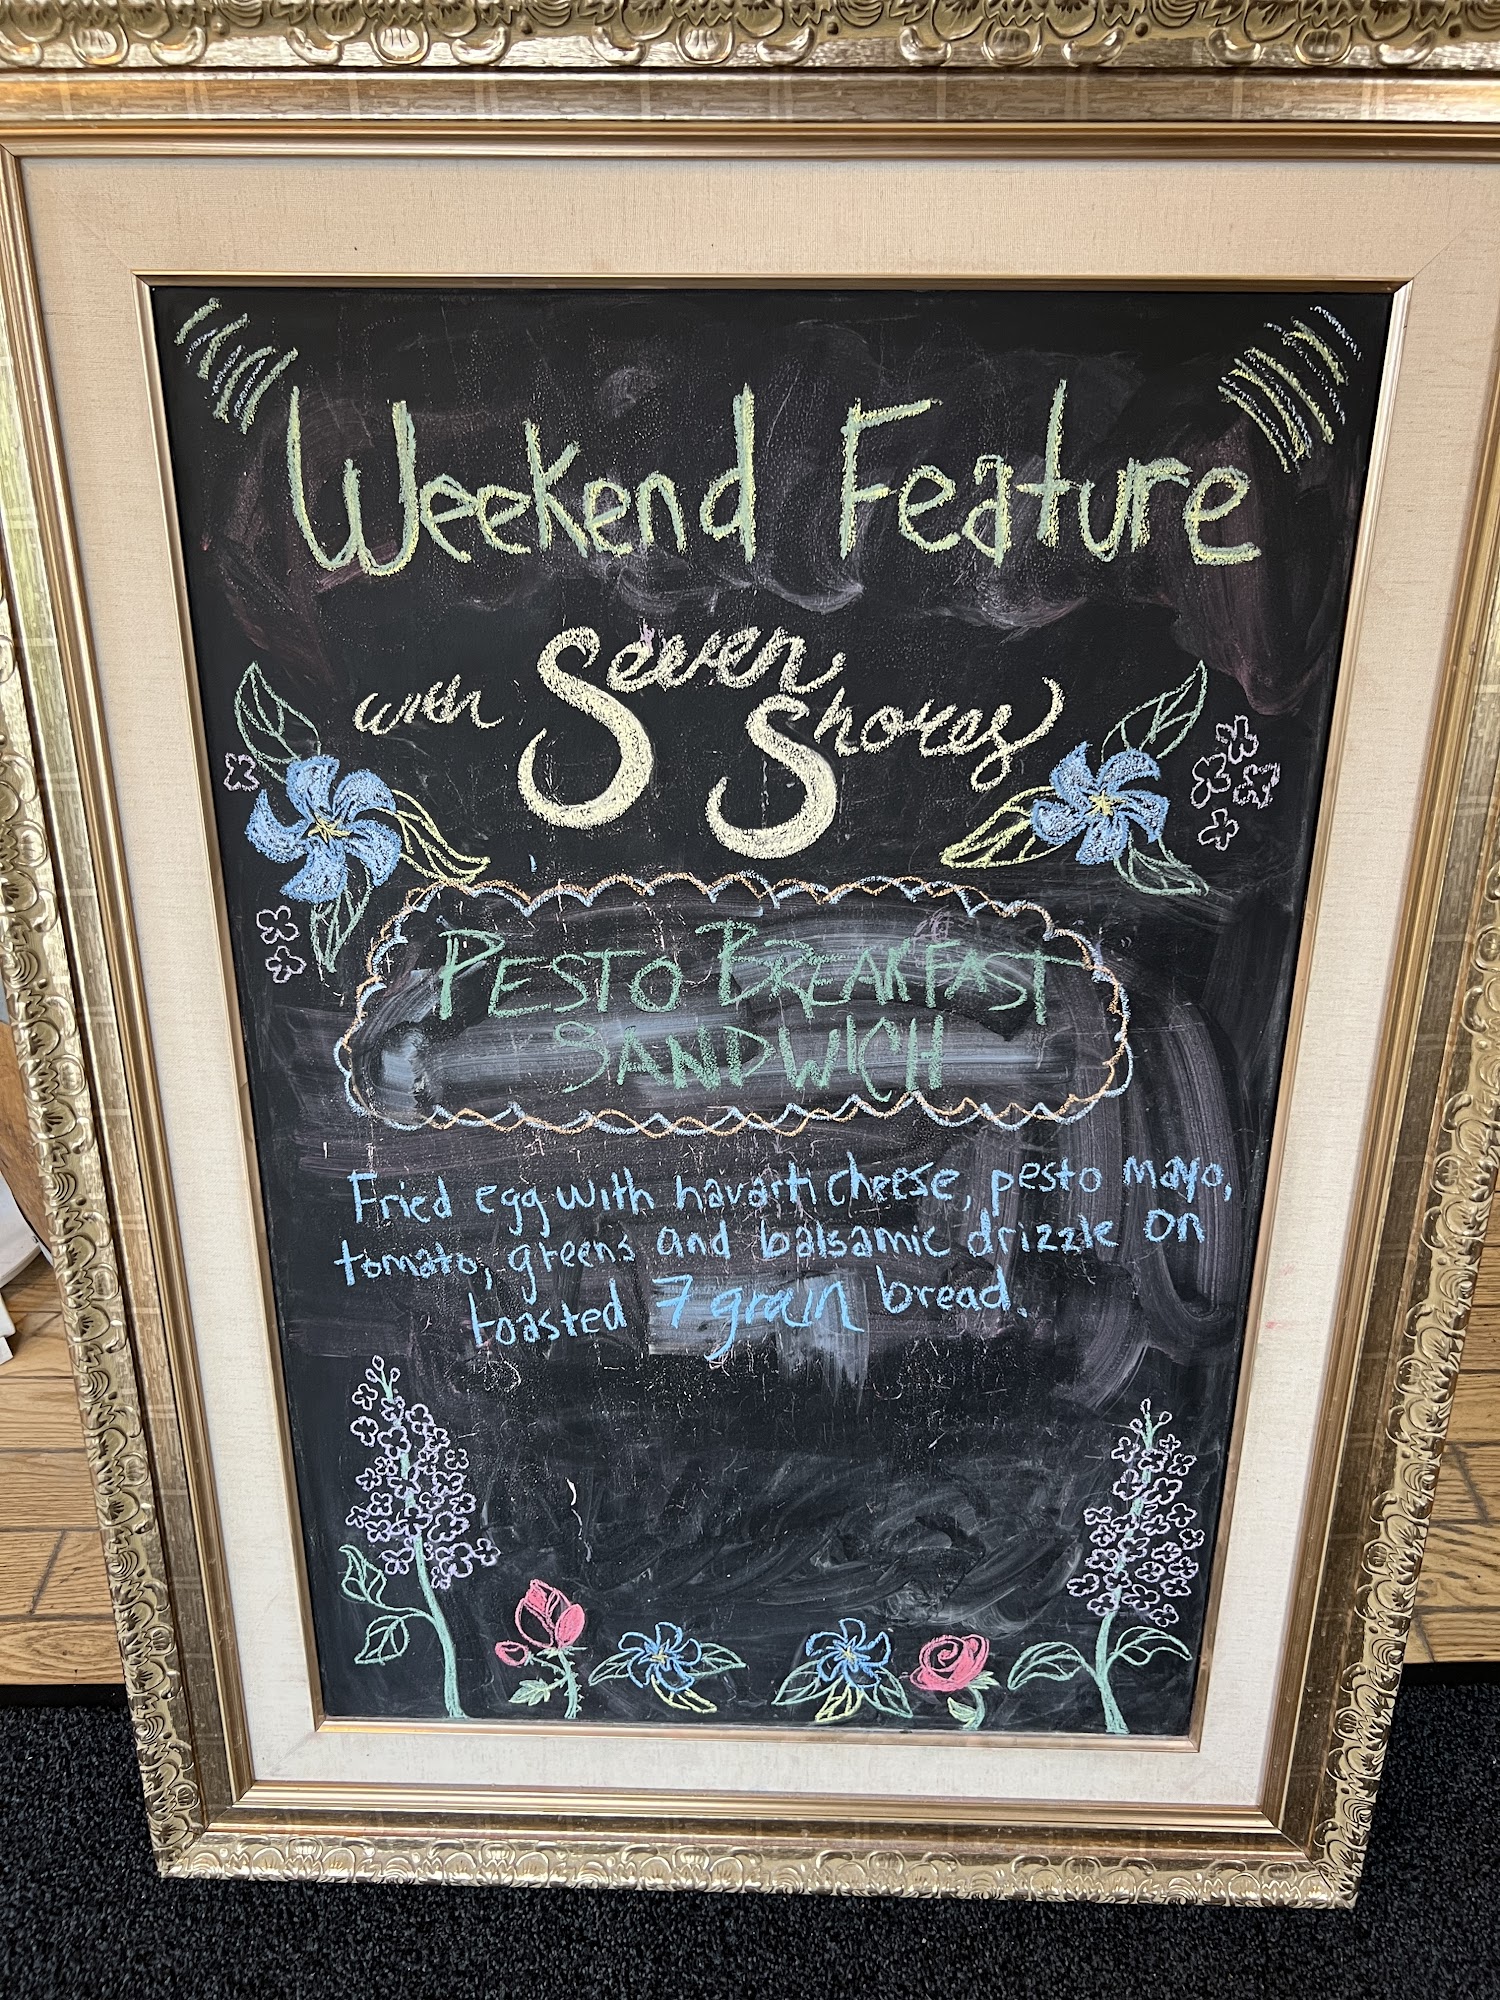 Weekend Feature
with Seven
Shores
PESTO BREAKFAST
SANDWICH
Fried egg with havarti cheese, pesto mayo,
tomato, greens and balsamic drizzle on
toasted 7 grain bread.